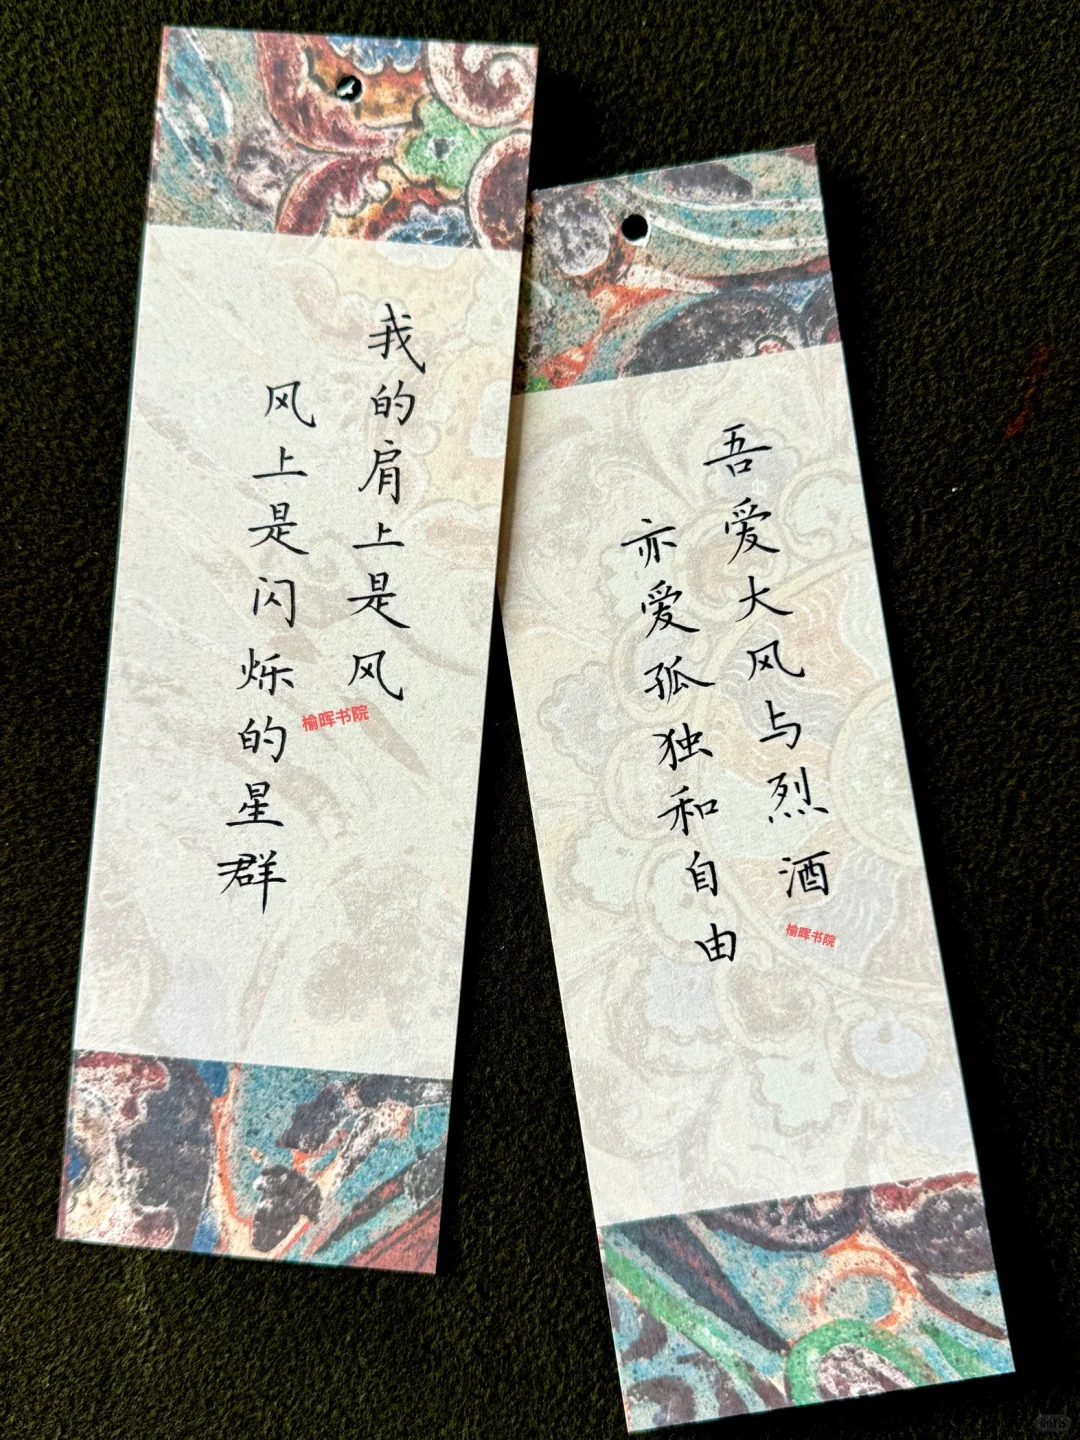 我的肩上是风
风上是闪烁的星群
榆晖书院
吾爱大风与烈酒
亦爱孤独和自由
榆晖书院